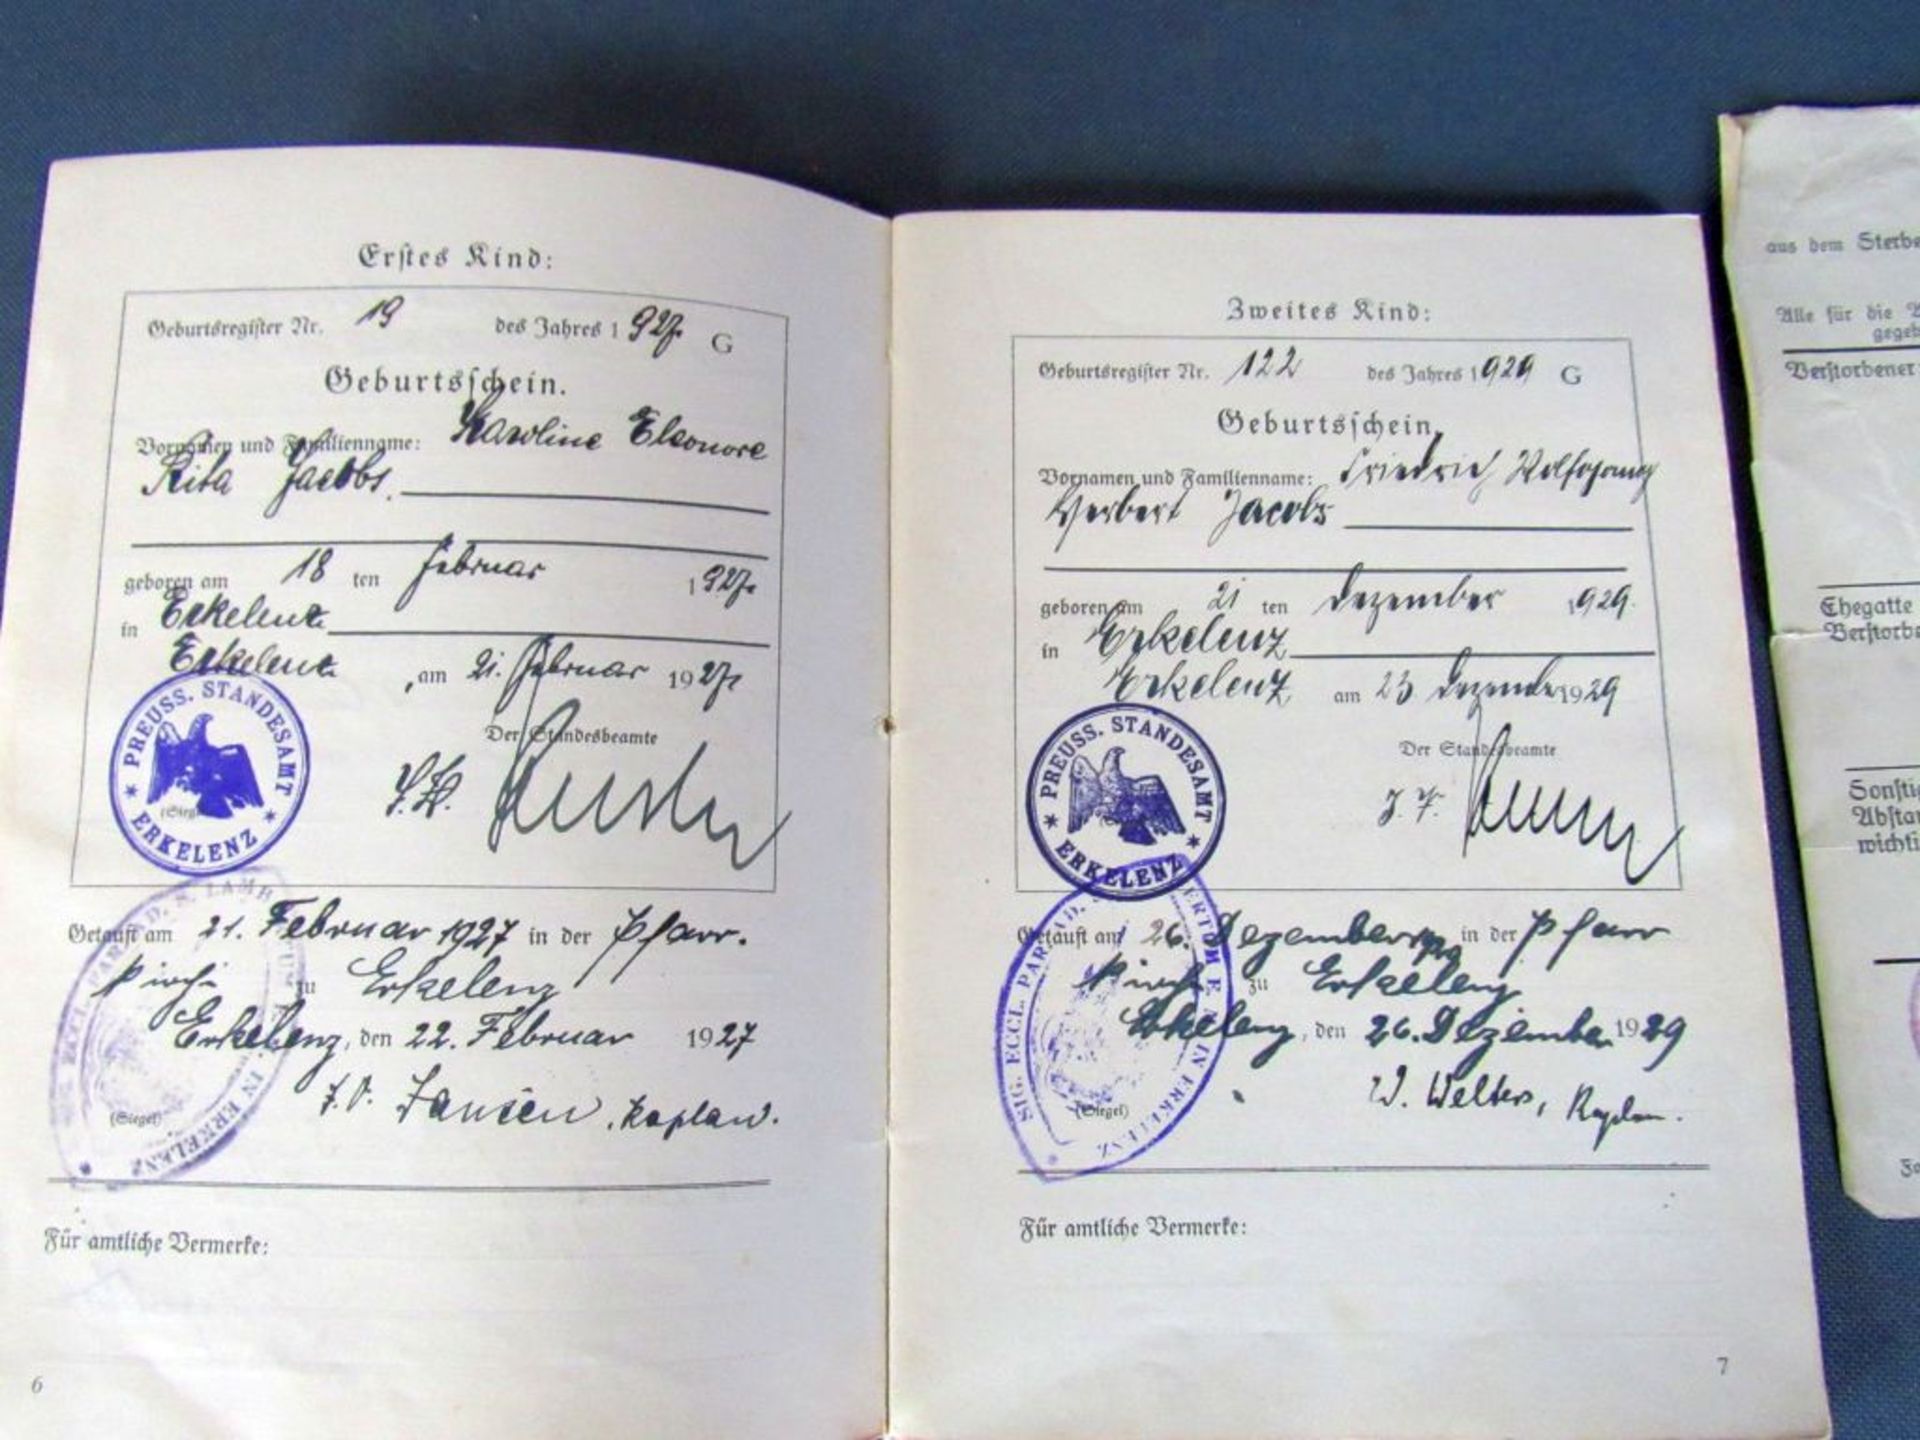 Erstes Kind:
Geburtsregister Nr. 19 des Jahres 1927 G
Geburtsschein.
Vornamen und Familienname: Karoline Eleonore
Rita Jacobs.
geboren am 18 ten Februar 1927
in Erkelenz
Erkelenz, am 21. Februar 1927
Der Standesbeamte
(Siegel)
PREUSS. STANDESAMT
ERKELENZ
Getauft am 21. Februar 1927 in der Pfarr-
kirche zu Erkelenz
Erkelenz, den 22. Februar 1927
J.V. Jansen, Kaplan.
(Siegel)
IN ERKELENZ
Für amtliche Vermerke:
6
Zweites Kind:
Geburtsregister Nr. 122 des Jahres 1929 G
Geburtsschein.
Vornamen und Familienname: Friedrich Wolfgang
Herbert Jacobs
geboren am 21 ten Dezember 1929.
in Erkelenz
Erkelenz am 23 Dezember 1929
Der Standesbeamte
PREUSS. STANDESAMT
ERKELENZ
Getauft am 26. Dezember in der Pfarr
kirche zu Erkelenz
Erkelenz, den 26. Dezember 1929
W. Welters, Kaplan.
(Siegel)
SIG. ECCL. PAR. AD. IN ERKELENZ
Für amtliche Vermerke:
7
aus dem Sterbe
Alle für die
gegeb
Verstorbener
Ehegatte
Verstorbe
Sonstig
Abstam
wichti